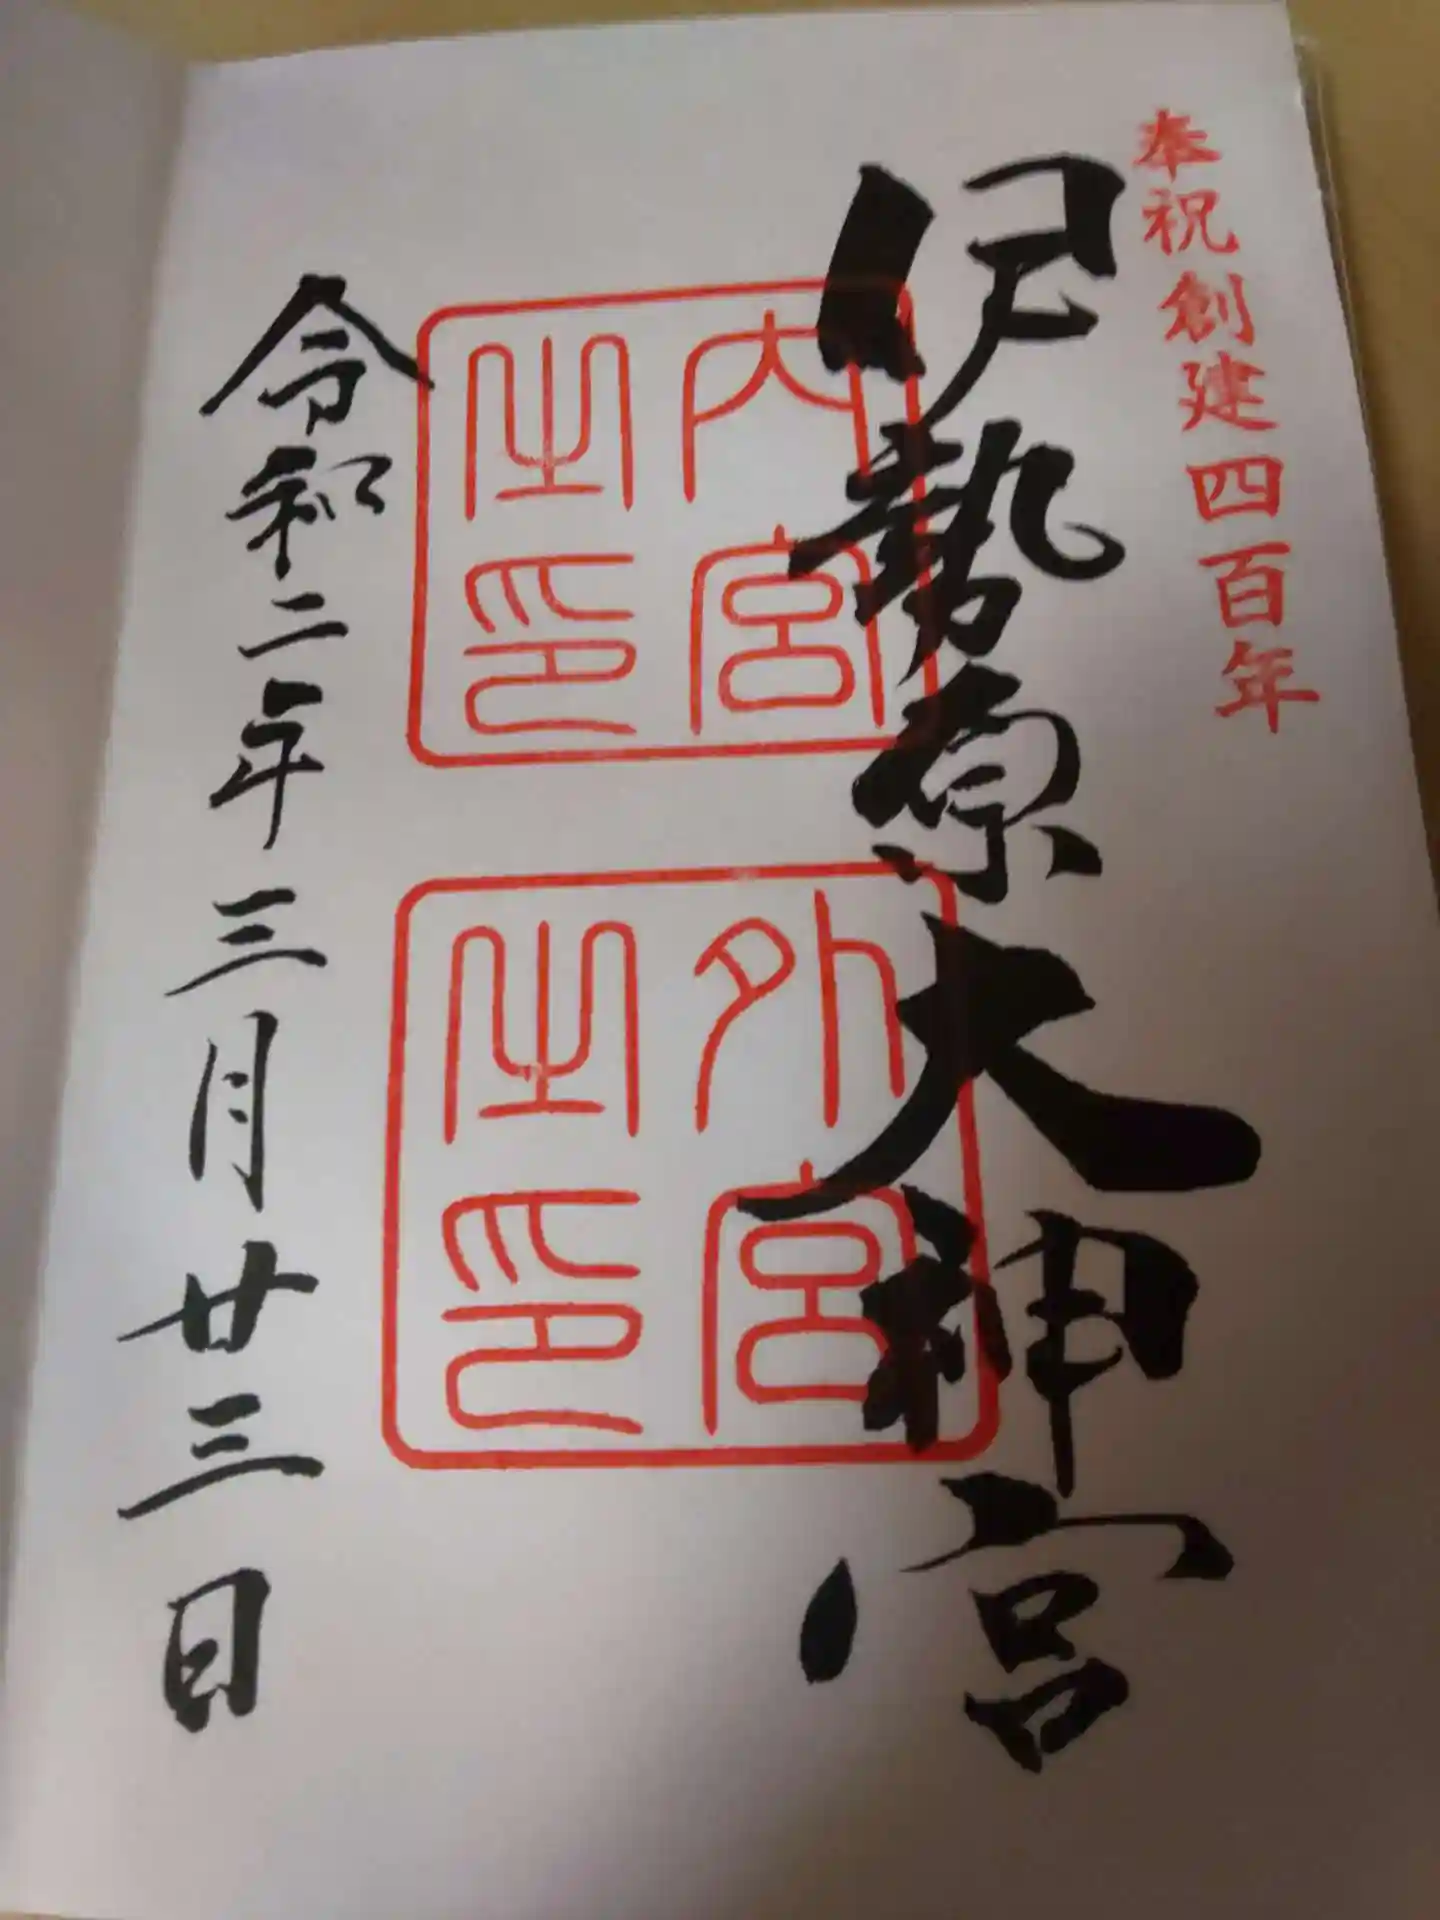 奉祝創建四百年
伊勢原大神宮
内宮
之印
外宮
之印
令和二年三月廿三日